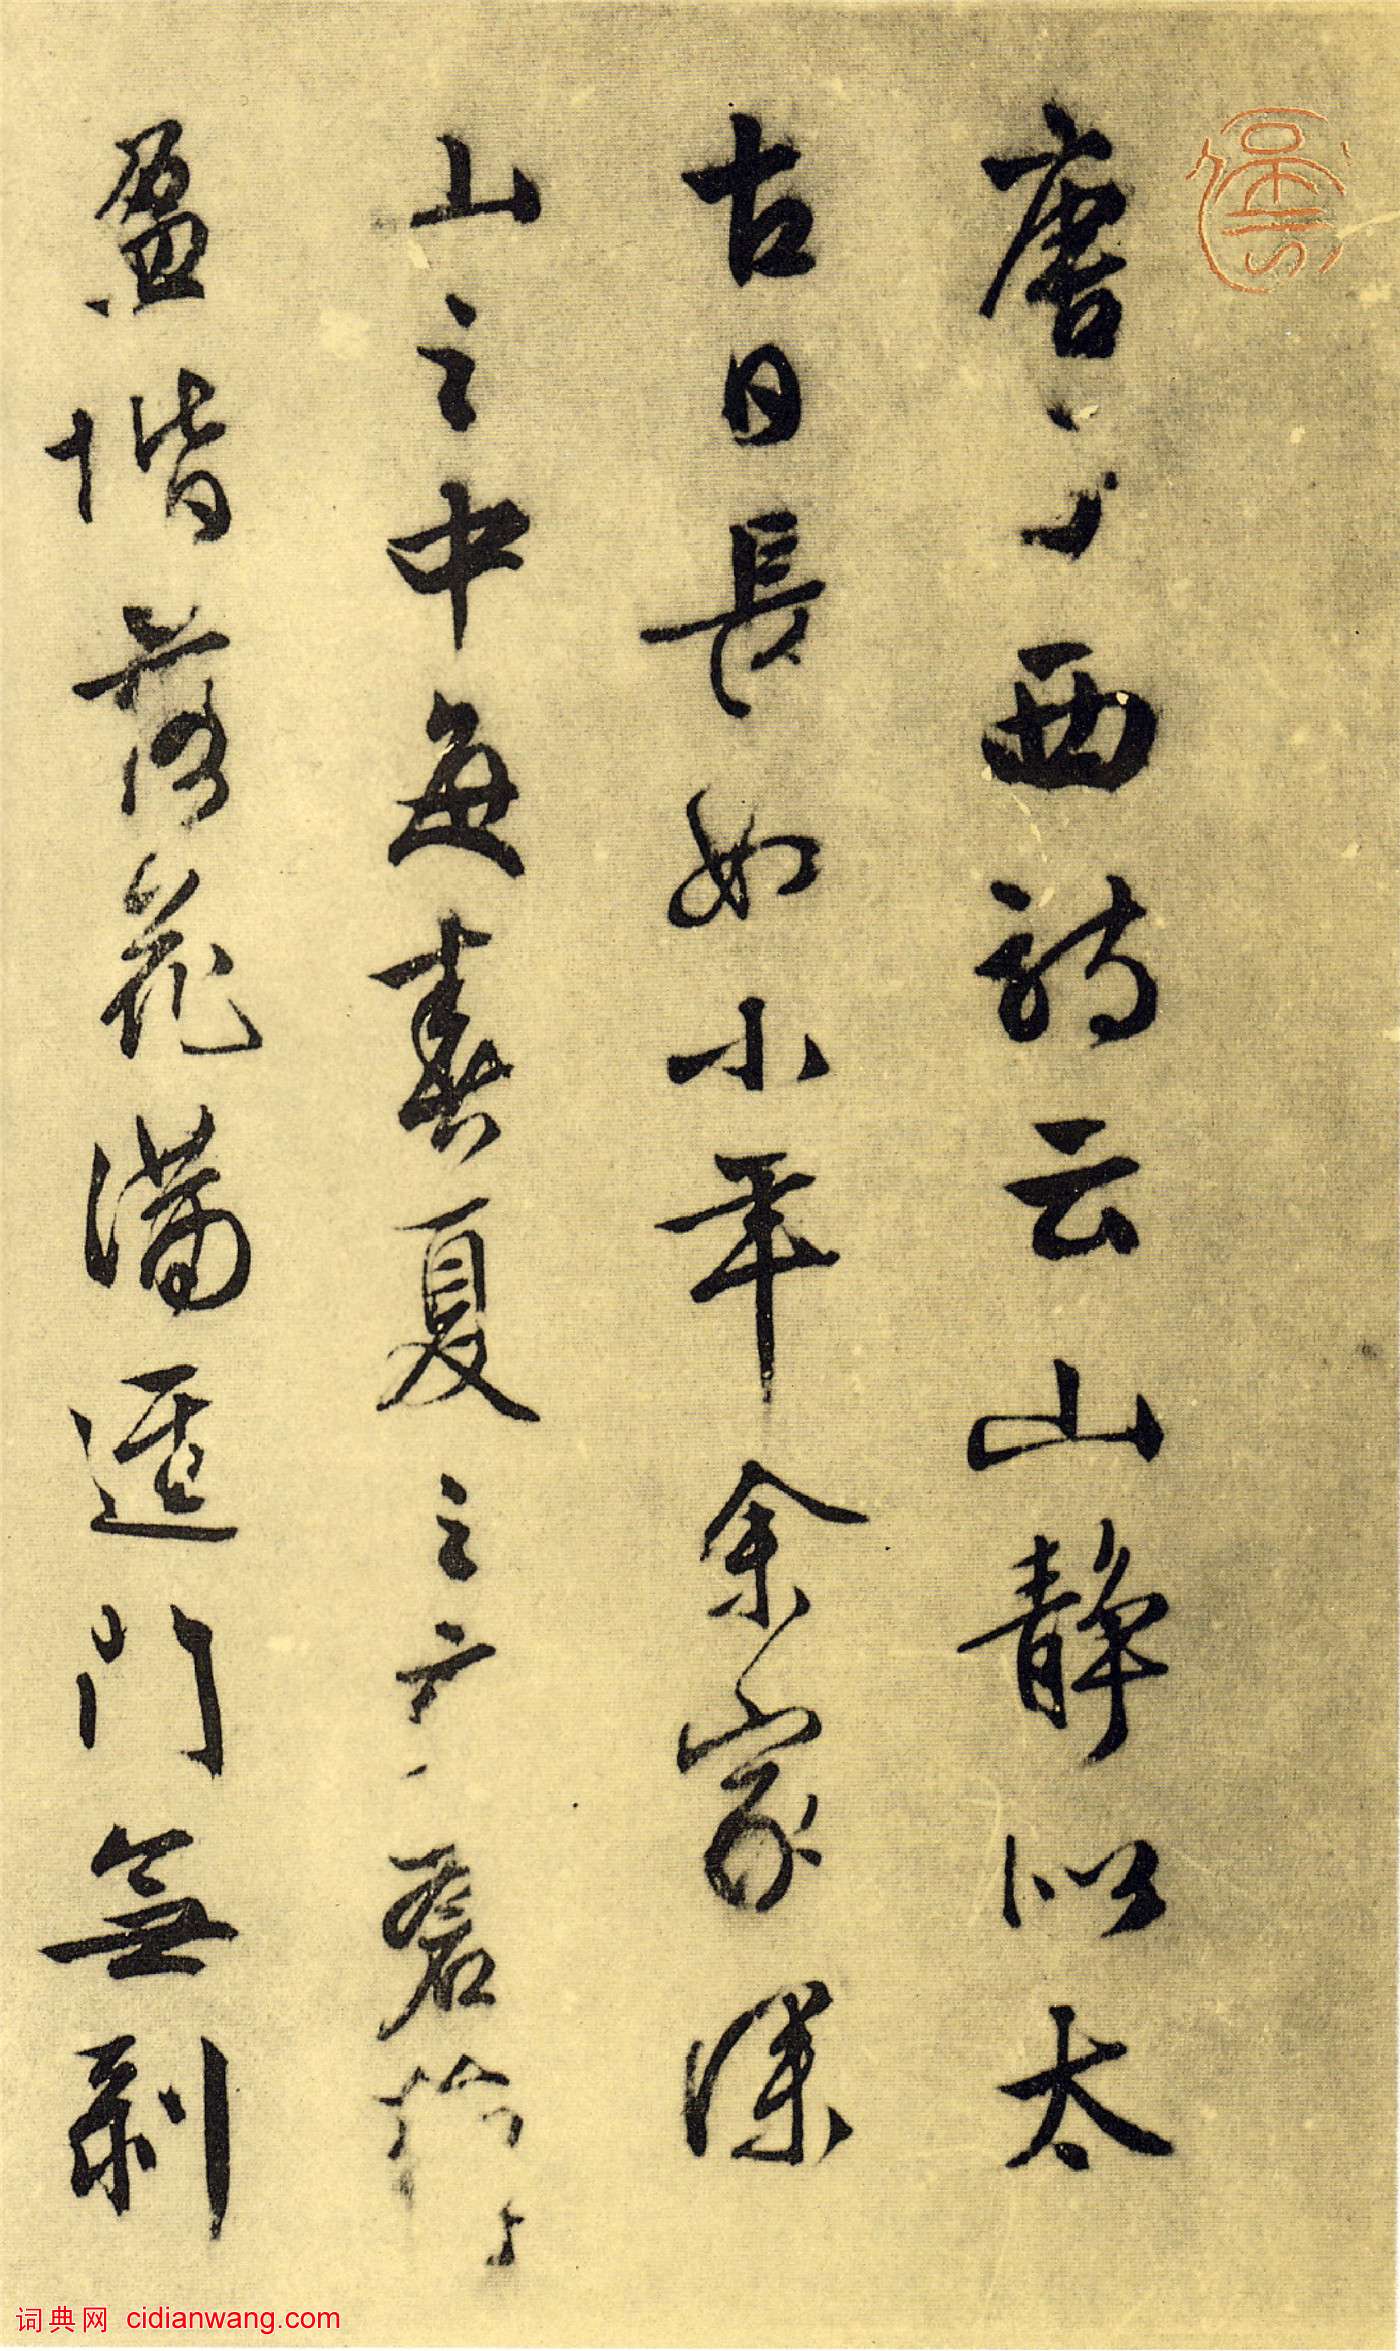 唐子西詩云山靜似太
古日長如小年余家深
山之中每春夏之交蒼蘚
盈堦落花滿逕門無剝
词典网 cidianwang.com